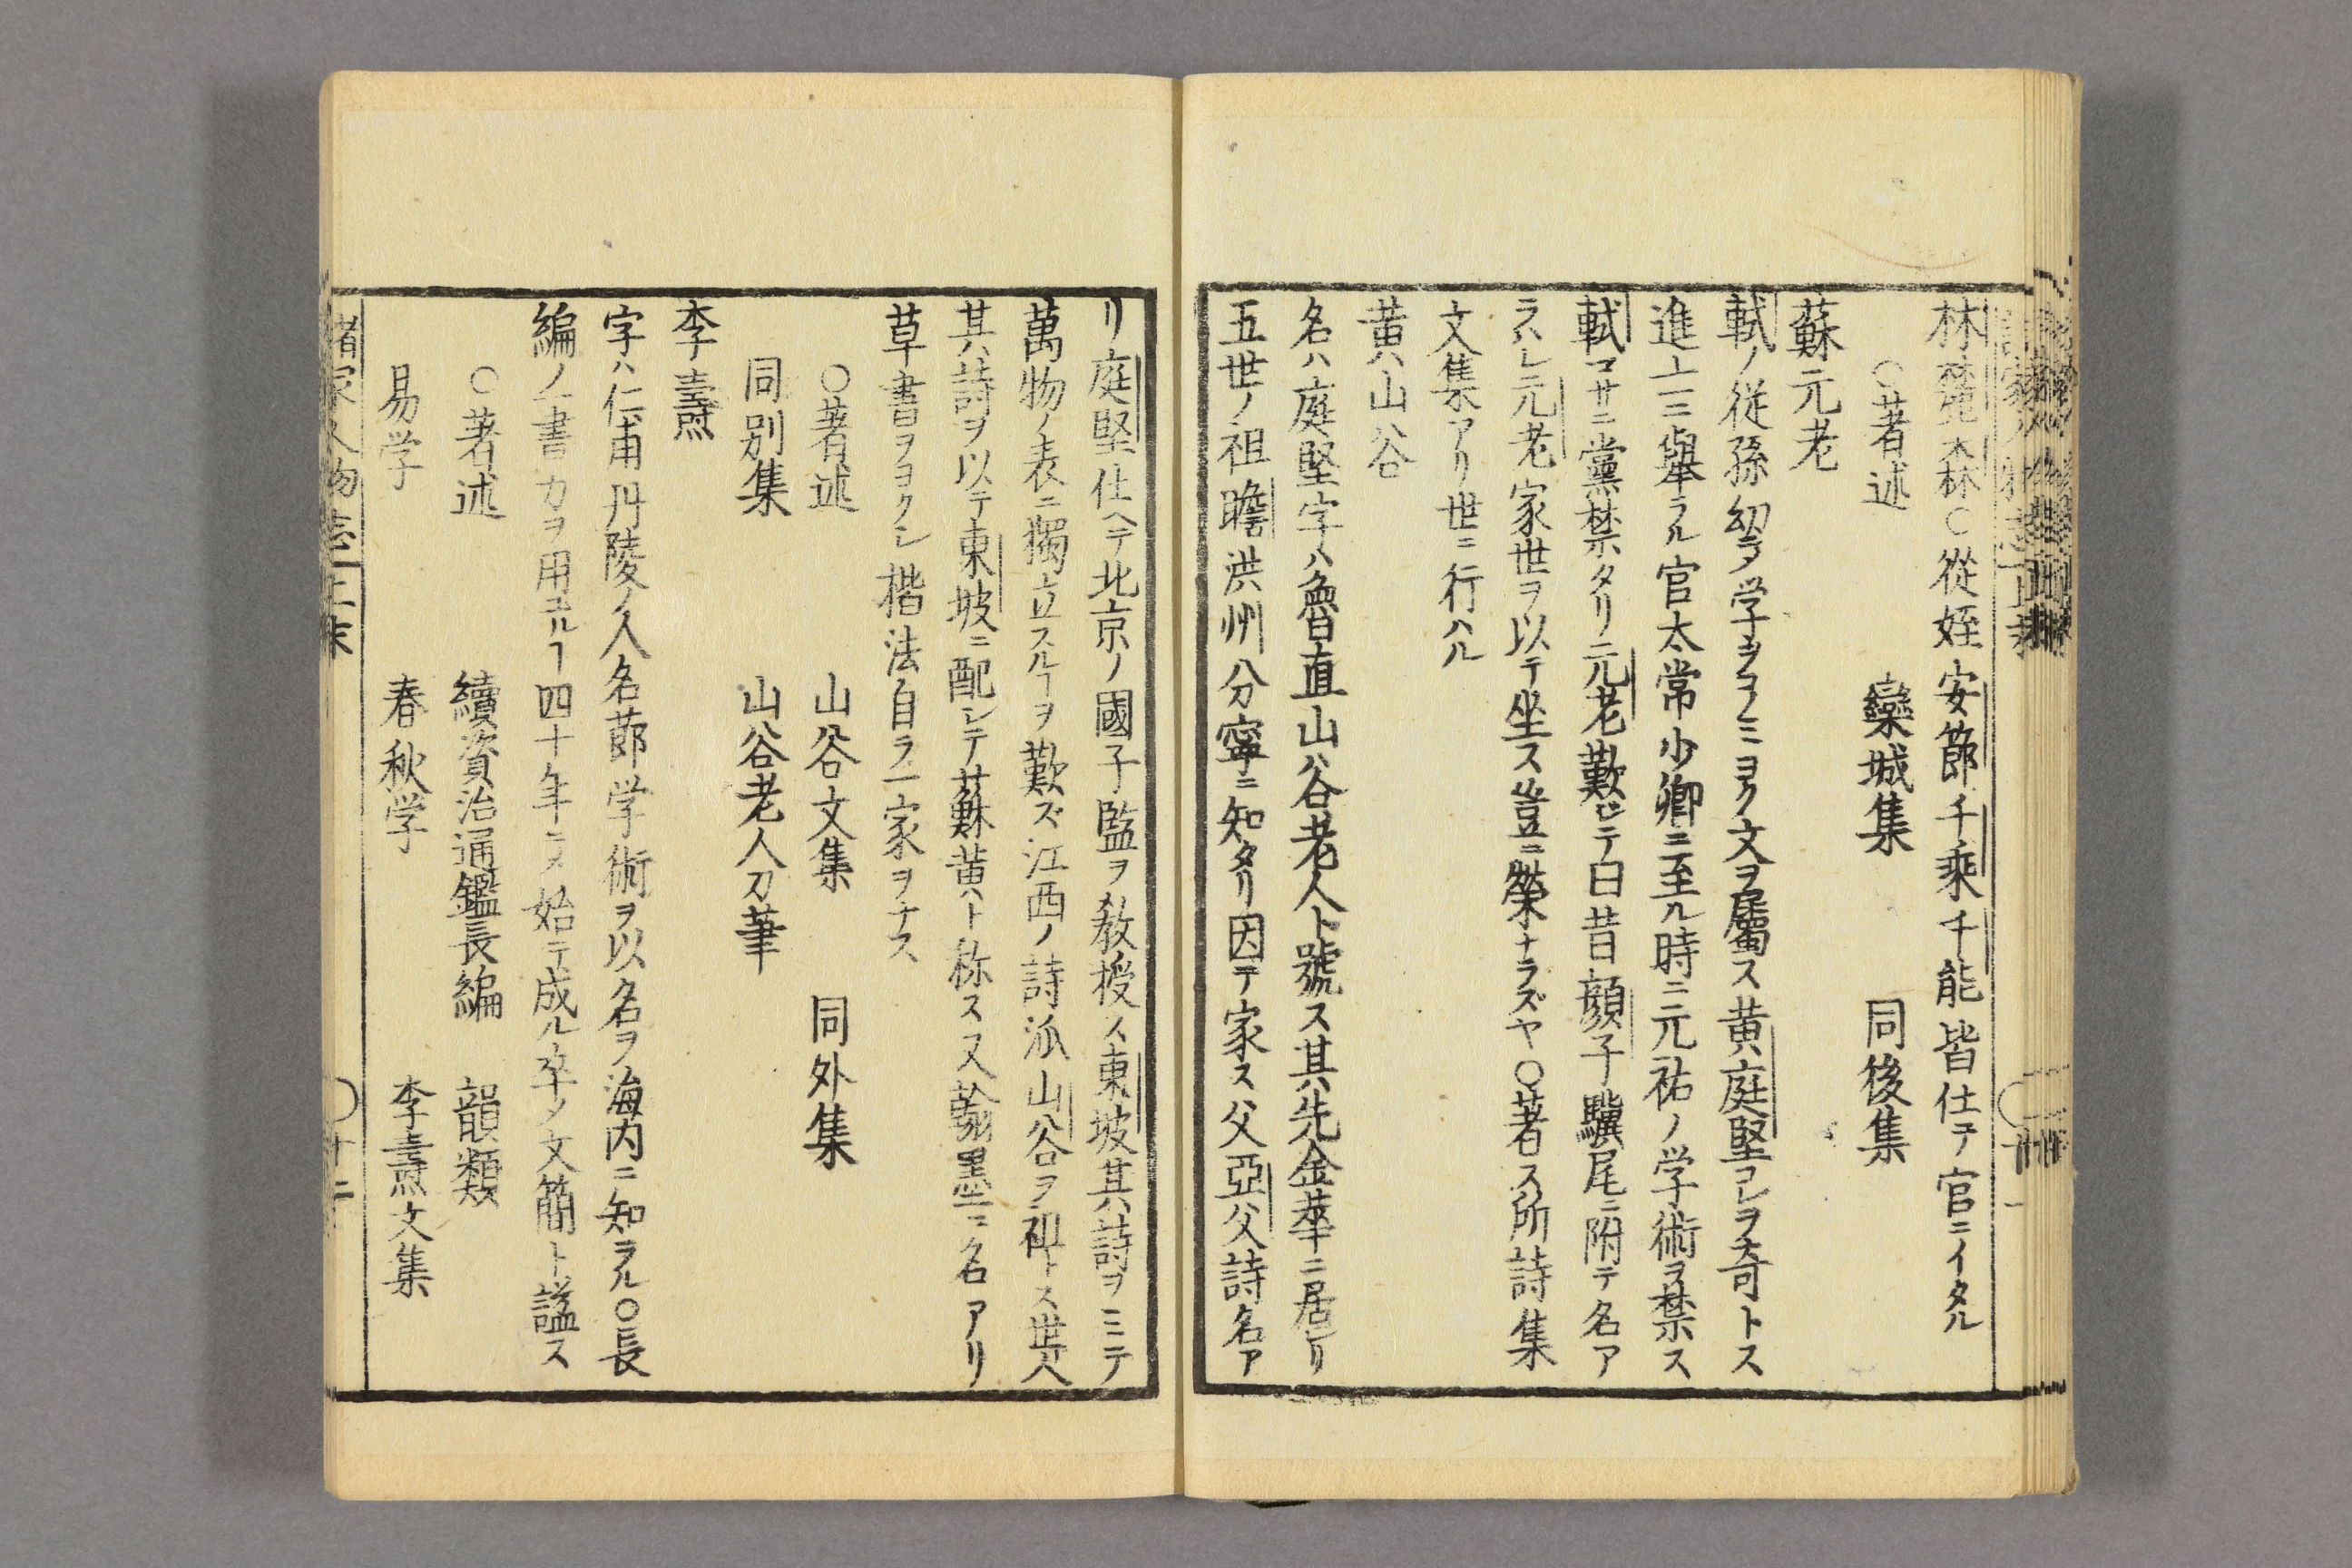 林焚森〇從姪安節千乘千能皆仕テ官ニイタル
〇著述　欒城集　同後集
蘇元老
軾ノ從孫幼ニ〆学ヲコノミヨク文ヲ屬ス黄庭堅コレヲ奇トス
進士ニ舉ラル官太常少卿ニ至ル時ニ元祐ノ学術ヲ禁ス
軾マサニ黨禁タリ元老歎ビテ曰昔顔子驥尾ニ附テ名ア
ラハレ元老家世ヲ以テ坐ス豈ニ榮ナラズヤ〇著ス所詩集
文集アリ世ニ行ハル
黄山谷
名ハ庭堅字ハ魯直山谷老人ト號ス其先金華ニ居レリ
五世ノ祖瞻洪州分寧ニ知タリ因テ家ス父亞父詩名ア
リ庭堅仕ヘテ北京ノ國子監ヲ教授ス東坡其詩ヲミテ
萬物ノ表ニ獨立スルヿヲ歎ズ江西ノ詩派山谷ヲ祖トス世人
其詩ヲ以テ東坡ニ配シテ蘇黄ト称ス又翰墨ニ名アリ
草書ヲヨクシ楷法自ラ一家ヲナス
〇著述　山谷文集　同外集
同別集　山谷老人刀筆
李燾
字ハ仁甫丹陵ノ人名節学術ヲ以名ヲ海内ニ知ラル〇長
編ノ一書力ヲ用ユルヿ四十年ニ〆始テ成ル卒ノ文簡ト諡ス
〇著述　續資治通鑑長編　韻類
易学　春秋学　李燾文集
諸家人物志　上末　〇十二